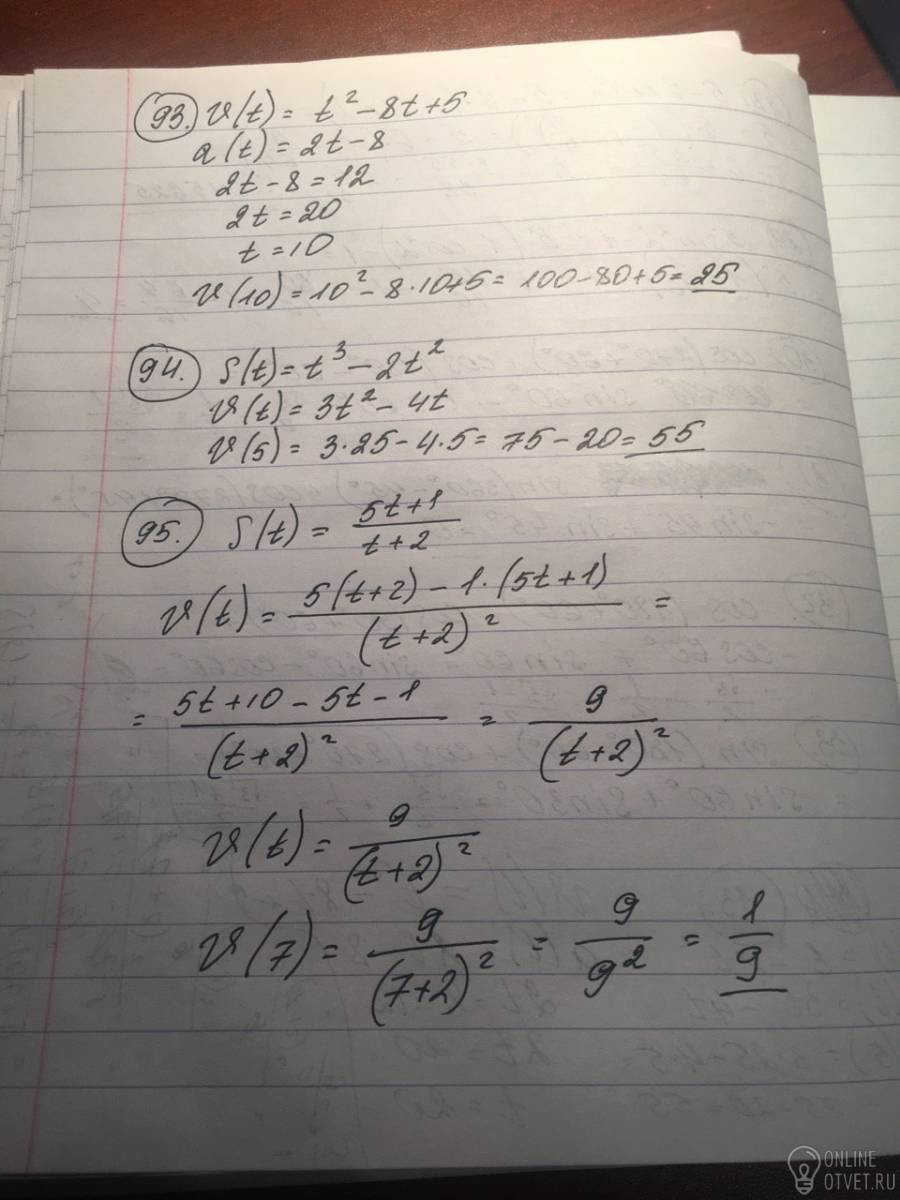 93. v(t) = t² - 8t + 5
a(t) = 2t - 8
2t - 8 = 12
2t = 20
t = 10
v(10) = 10² - 8·10+5 = 100 - 80 + 5 = 25
94. S(t) = t³ - 2t²
v(t) = 3t² - 4t
v(5) = 3·25 - 4·5 = 75 - 20 = 55
95. S(t) = (5t+1)/(t+2)
v(t) = (5(t+2) - 1·(5t+1))/(t+2)² =
= (5t+10 - 5t - 1)/(t+2)² = 9/(t+2)²
v(t) = 9/(t+2)²
v(7) = 9/(7+2)² = 9/9² = 1/9
ONLINE
OTVET.RU